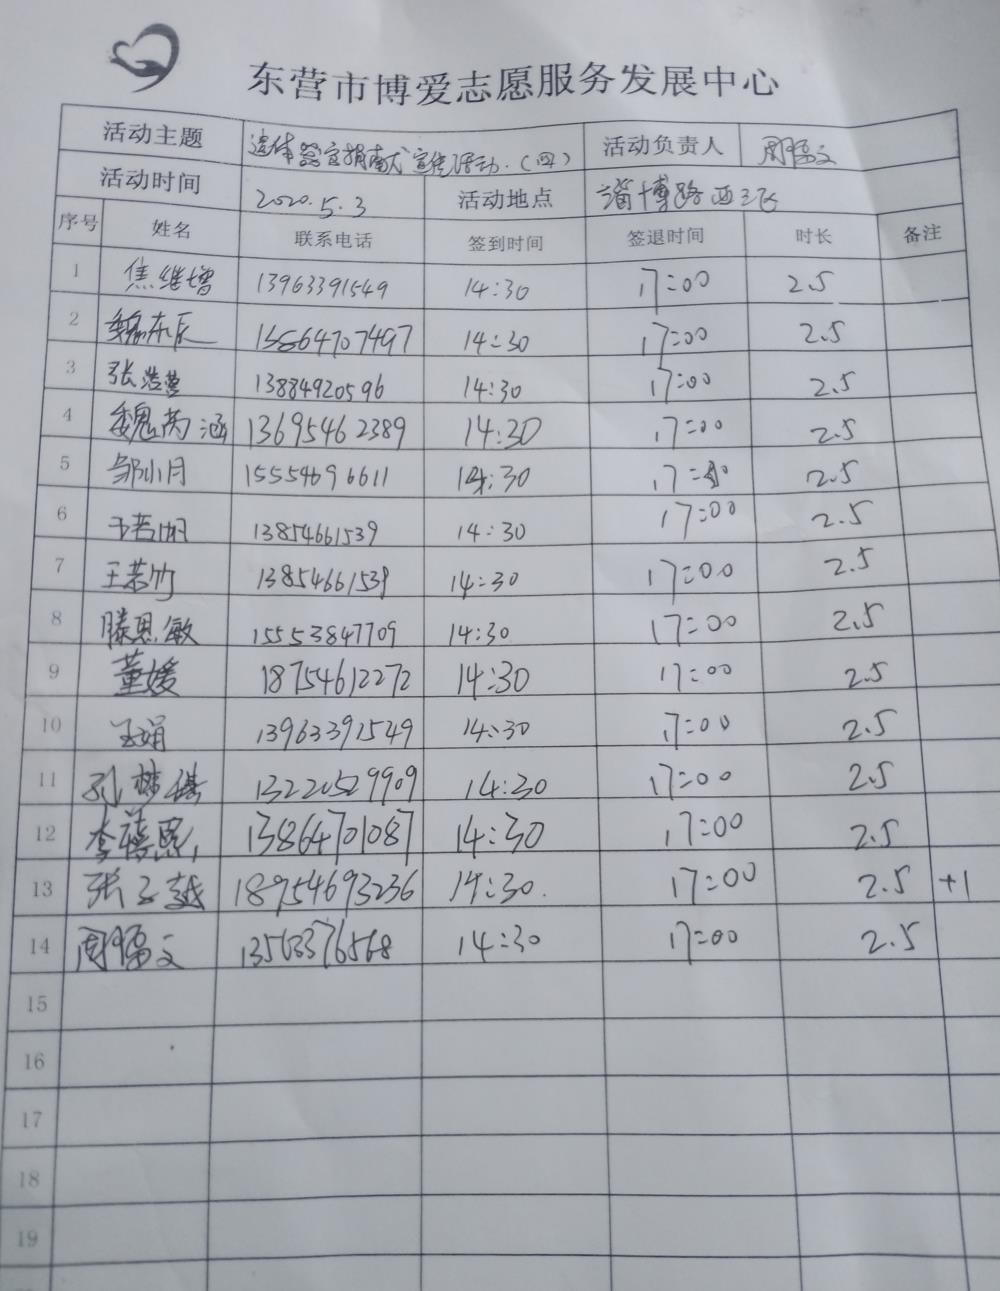 东营市博爱志愿服务发展中心
活动主题 遗体器官捐献 宣传活动.(四) 活动负责人 周 文
活动时间 2020.5.3 活动地点 淄博路西三
序号 姓名 联系电话 签到时间 签退时间 时长 备注
1 焦继增 13963391549 14:30 17:00 2.5
2 魏东辰 13864707497 14:30 17:00 2.5
3 张浩营 13884920596 14:30 17:00 2.5
4 魏芮涵 13695462389 14:30 17:00 2.5
5 邹小月 15554696611 14:30 17:00 2.5
6 王若 13854661539 14:30 17:00 2.5
7 王若竹 13854661539 14:30 17:00 2.5
8 滕恩敏 15553847709 14:30 17:00 2.5
9 董媛 18754612272 14:30 17:00 2.5
10 王娟 13963391549 14:30 17:00 2.5
11 孙梦 13220529909 14:30 17:00 2.5
12 李 13864701087 14:30 17:00 2.5
13 张子越 18954693236 14:30. 17:00 2.5 +1
14 周 文 13563376568 14:30 17:00 2.5
15
16
17
18
19